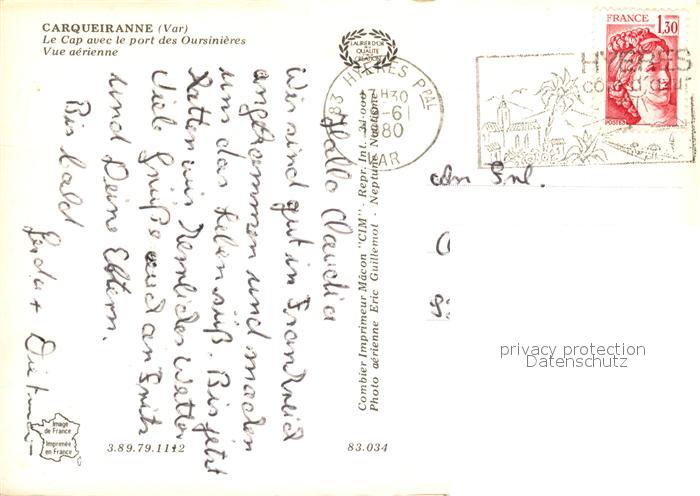 CARQUEIRANNE (Var)
Le Cap avec le port des Oursinières
Vue aérienne
LAURIER D'OR
DE LA
QUALITÉ
CREATION
83 HYERES PPAL
17H30
-6
1980
VAR
HYERES
côte d'azur
FRANCE
1,30
POSTES
Hallo Claudia
Wir sind gut in Frankreich
angekommen und machen
uns das Leben süß. Bis jetzt
hatten wir herrliches Wetter
Viele Grüße auch an Fritz
und Deine Eltern.
Bis bald
Gerda + Dietmar
Combier Imprimeur Mâcon "CIM" - Repr. Int.
Photo aérienne Eric Guillemot - Neptune Nautisme
An Frl.
privacy protection
Datenschutz
Image
de France
Imprimée
en France
3.89.79.1112
83.034